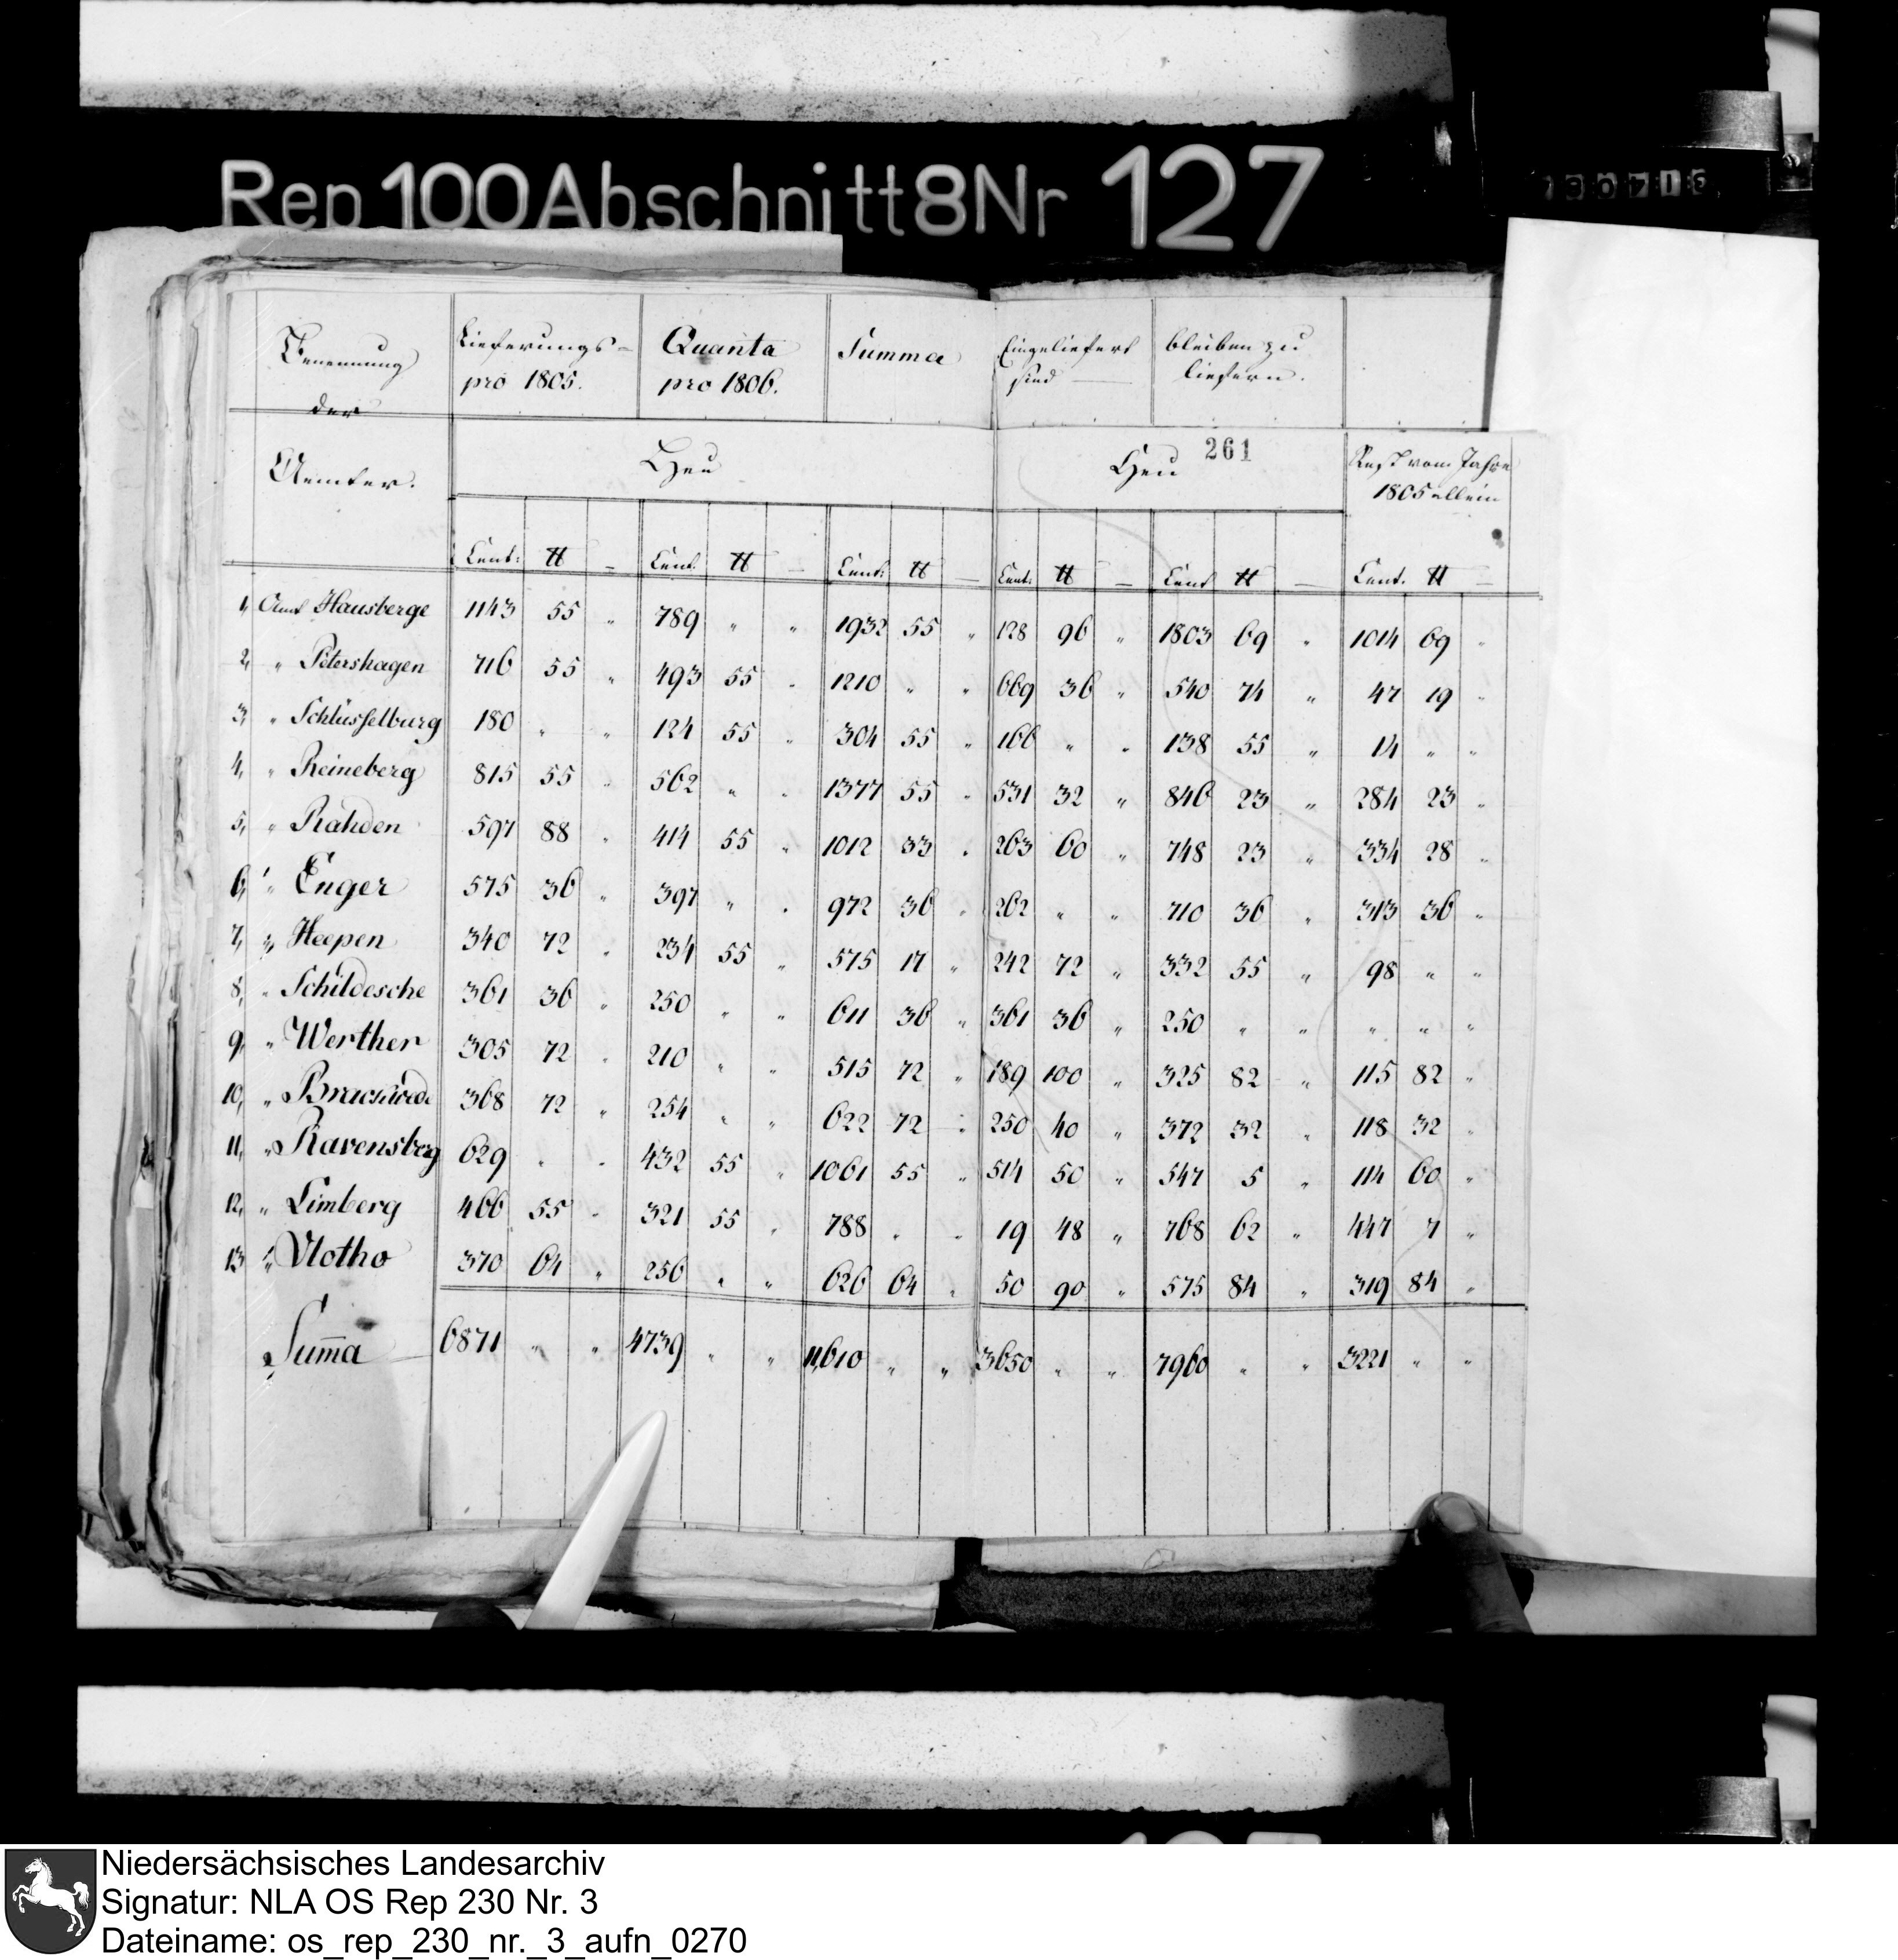 Rep 100 Abschnitt 8 Nr 127
Benennung der Aemter. | Lieferungs- pro 1805. | Quanta pro 1806. | Summa | Eingeliefert sind | bleiben zu liefern.
Heu | Heu | 261 | Rest vom Jahre 1805 allein
Cent: ℔ – | Cent. ℔ – | Cent: ℔ – | Cent: ℔ – | Cent ℔ – | Cent. ℔ –
1, Amt Hausberge 1143 55 „ 789 „ „ 1932 55 „ 128 96 „ 1803 69 „ 1014 69 „
2, „ Petershagen 716 55 „ 493 55 „ 1210 „ „ 669 36 „ 540 74 „ 47 19 „
3, „ Schlüsselburg 180 „ „ 124 55 „ 304 55 „ 166 „ „ 138 55 „ 14 „ „
4, „ Reineberg 815 55 „ 562 „ „ 1377 55 „ 531 32 „ 846 23 „ 284 23 „
5, „ Rahden 597 88 „ 414 55 „ 1012 33 „ 263 60 „ 748 23 „ 334 28 „
6, „ Enger 575 36 „ 397 „ „ 972 36 „ 262 „ „ 710 36 „ 313 36 „
7, „ Heepen 340 72 „ 234 55 „ 575 17 „ 242 72 „ 332 55 „ 98 „ „
8, „ Schildesche 361 36 „ 250 „ „ 611 36 „ 361 36 „ 250 „ „ „ „ „
9, „ Werther 305 72 „ 210 „ „ 515 72 „ 189 100 „ 325 82 „ 115 82 „
10, „ Brackwede 368 72 „ 254 „ „ 622 72 „ 250 40 „ 372 32 „ 118 32 „
11, „ Ravensberg 629 „ „ 432 55 „ 1061 55 „ 514 50 „ 547 5 „ 114 60 „
12, „ Limberg 466 55 „ 321 55 „ 788 „ „ 19 48 „ 768 62 „ 447 7 „
13 „ Vlotho 370 64 „ 256 „ „ 626 64 „ 50 90 „ 575 84 „ 319 84 „
Sum̅a 6871 „ „ 4739 „ „ 11,610 „ „ 3650 „ „ 7960 „ „ 3221 „ „
Niedersächsisches Landesarchiv
Signatur: NLA OS Rep 230 Nr. 3
Dateiname: os_rep_230_nr._3_aufn_0270